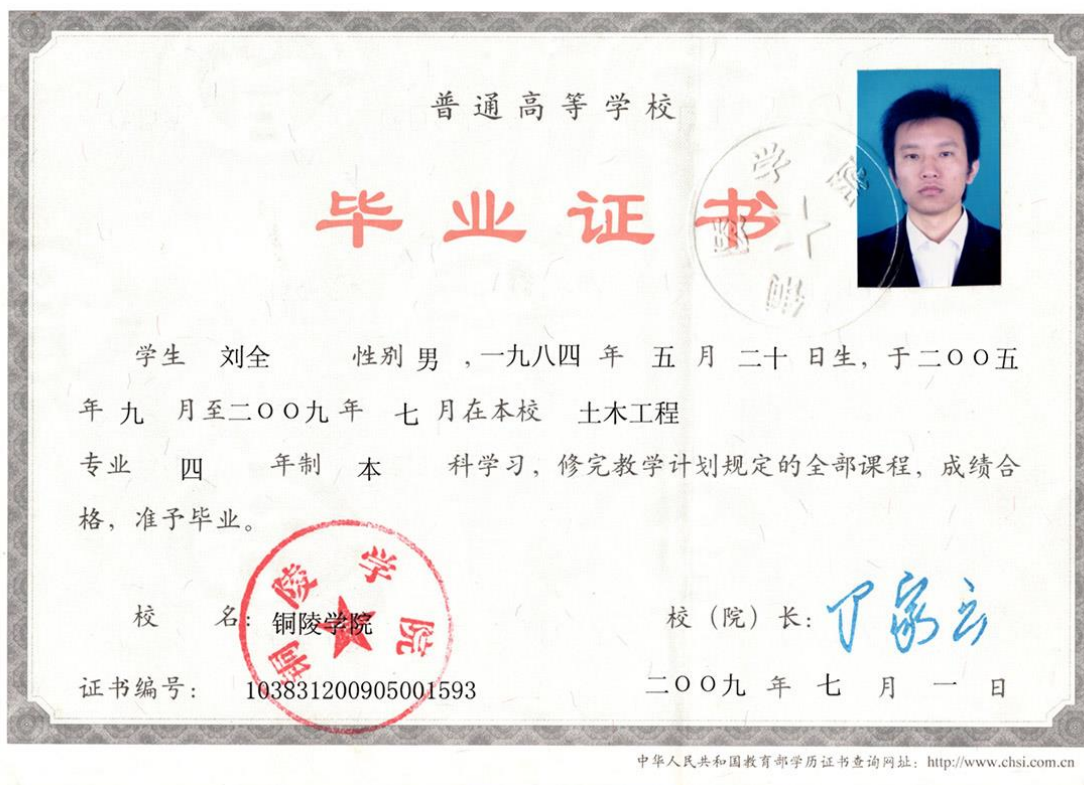 普通高等学校
毕业证书
学院
铜陵
学生 刘全 性别 男 ,一九八四 年 五 月 二十 日生, 于二OO五
年 九 月至二OO九年 七 月在本校 土木工程
专业 四 年制 本 科学习, 修完教学计划规定的全部课程, 成绩合
格, 准予毕业。
铜陵学院
校 名: 铜陵学院 校(院)长: 丁家云
证书编号: 103831200905001593 二OO九 年 七 月 一 日
中华人民共和国教育部学历证书查询网址: http://www.chsi.com.cn